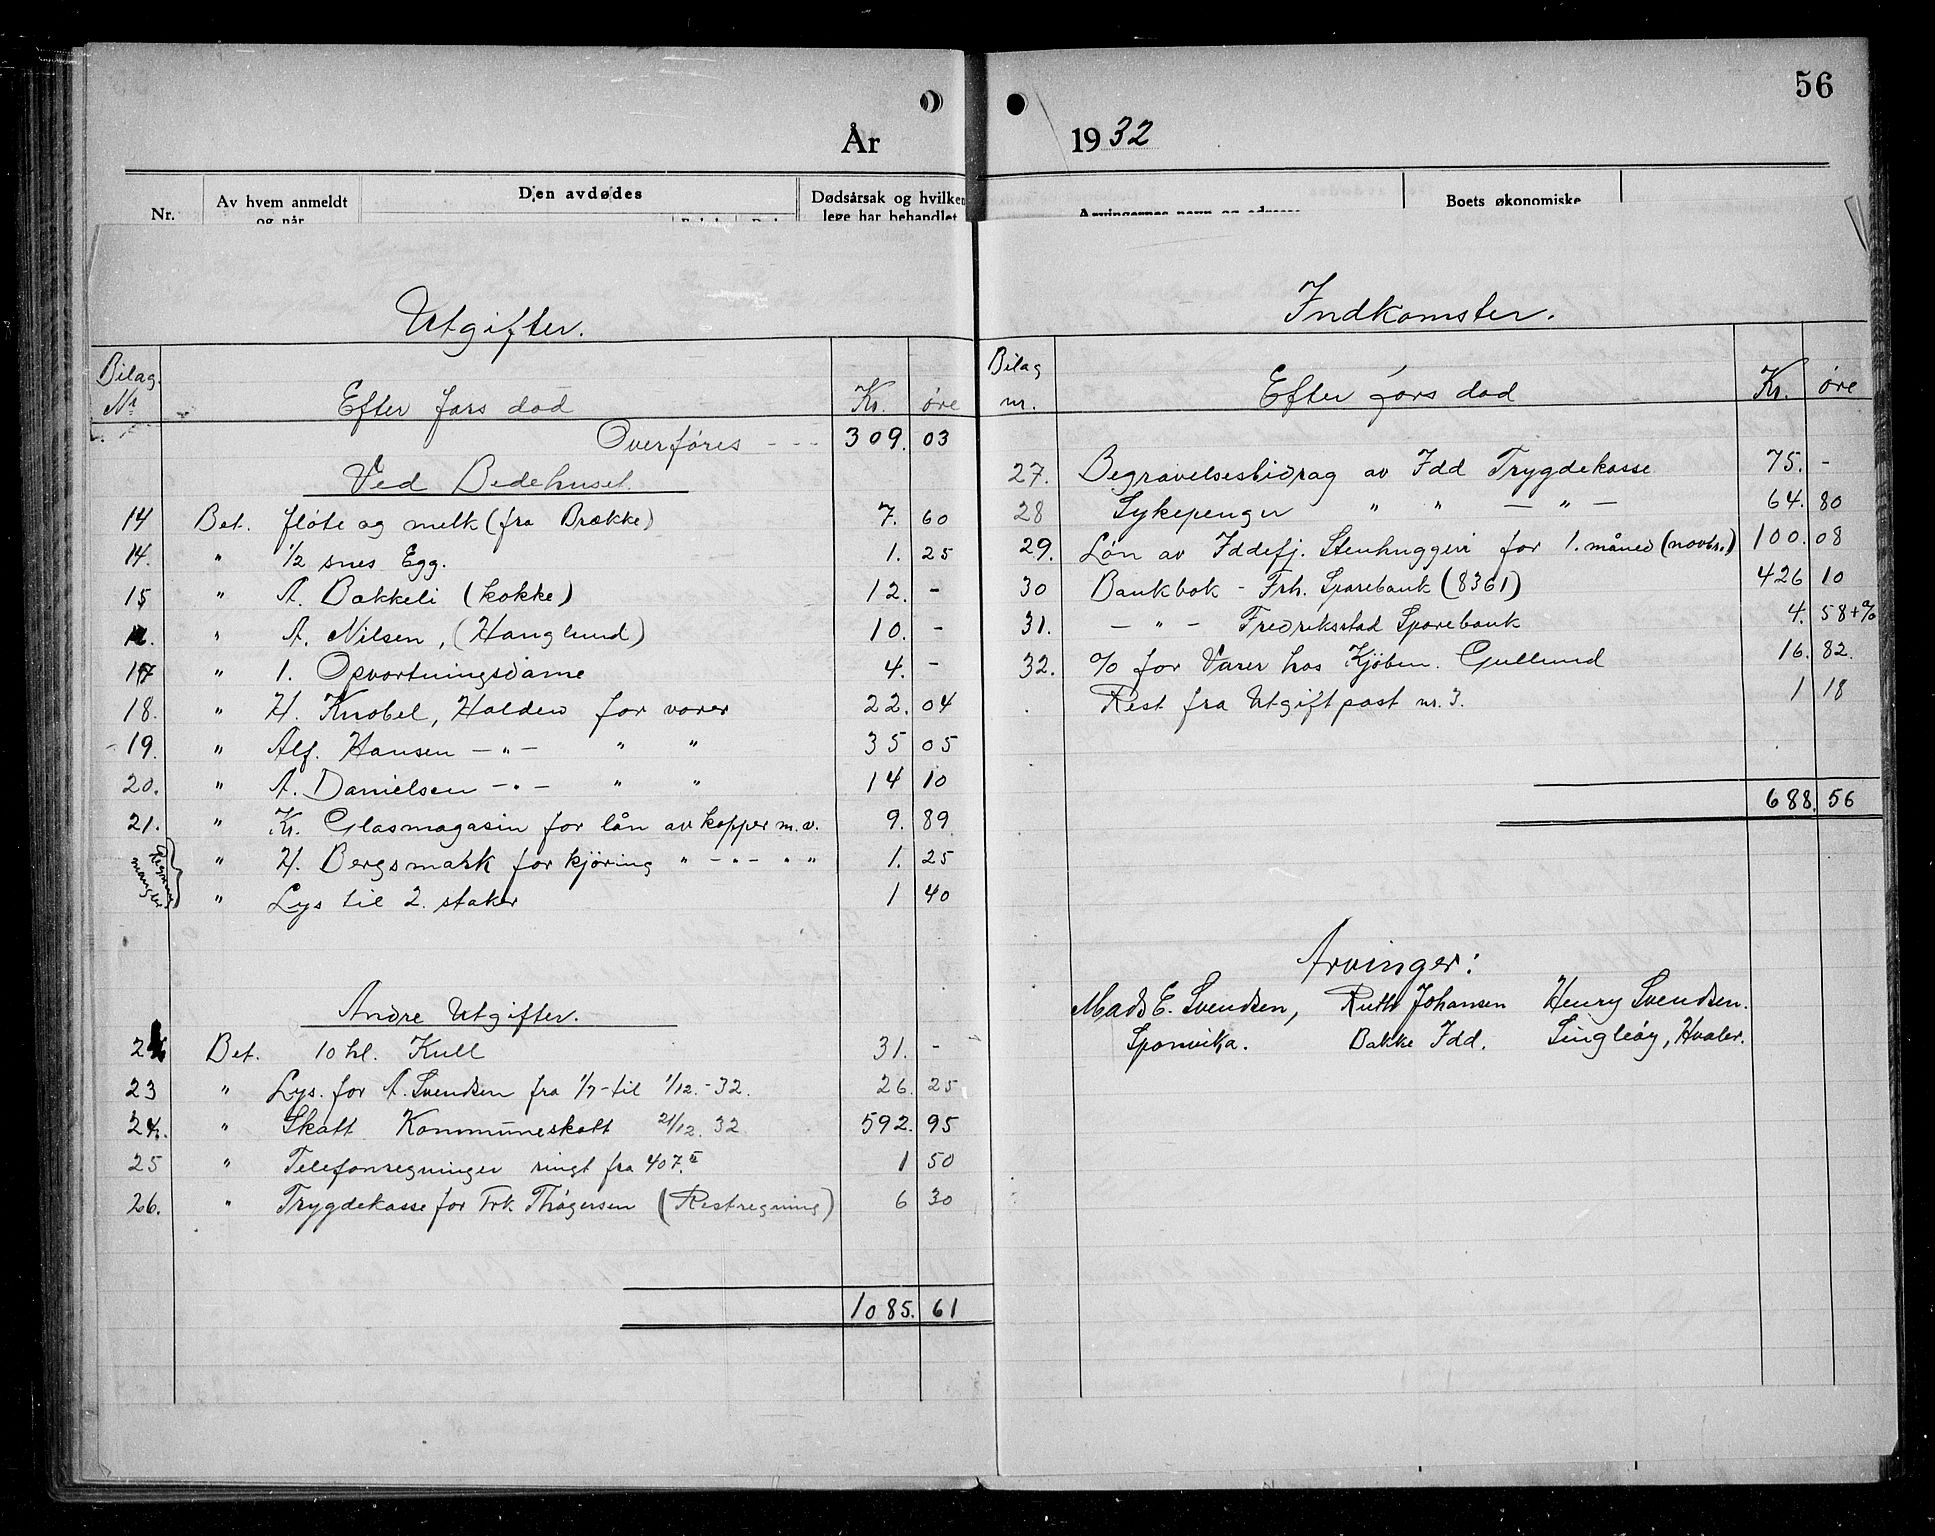 56
År 1932
Nr.
Av hvem anmeldt og når
Den avdødes
Dødsårsak og hvilken lege har behandlet
Arvingernes navn og adresse
Boets økonomiske
Utgifter.
Bilag. Nr. Efter fars död Kr. øre
Overføres - - - 309. 03
Ved Bedehuset.
14 Bet. fløte og melk (fra Brække) 7. 60
14. " 1/2 snes Egg. 1. 25
15 " A. Bakkeli (kokke) 12. -
" A. Nilsen, (Hanglund) 10. -
17 " 1. Opvortningsdame 4. -
18. " H. Knobel, Halden for varer 22. 04
19. " Alf. Hansen - " - " " 35 05
20. " A. Danielsen - " - " " 14 10
21. " Kr. Glasmagasin for lån av kopper m.v. 9. 89
Regninger mangler } " H. Bergsmark for kjøring " - " - " " 1. 25
" Lys til 2. staker 1 40
Andre Utgifter.
Bet. 10 hl. Kull 31. -
23 " Lys. for A. Svendsen fra 1/7 - til 1/12 - 32. 26. 25
24. " Skatt Kommuneskatt 21/12. 32 592. 95
25 " Telefonregninger ringt fra 407.II 1 50
26. " Trygdekasse for Frk. Thøgersen (Restregning) 6 30
1085. 61
Indkomster.
Bilag nr. Efter fars död Kr. øre
27. Begravelsesbidrag av Idd Trygdekasse 75. -
28 Sykepenger " " - " - 64. 80
29. Løn av Iddefj. Stenhuggeri for 1. måned (novbr.) 100. 08
30 Bankbok - Frh. Sparebank (8361) 426 10
31. - " - Fredriksstad Sparebank 4. 58 + %
32. % for Varer hos Kjöbm. Gullund 16. 82.
Rest fra Utgiftpost nr. 3. 1 18
688. 56
Arvinger:
Mads E. Svendsen, Ruth Johansen Henry Svendsen.
Sponvika. Bakke Idd. Singleøy, Hvaler.